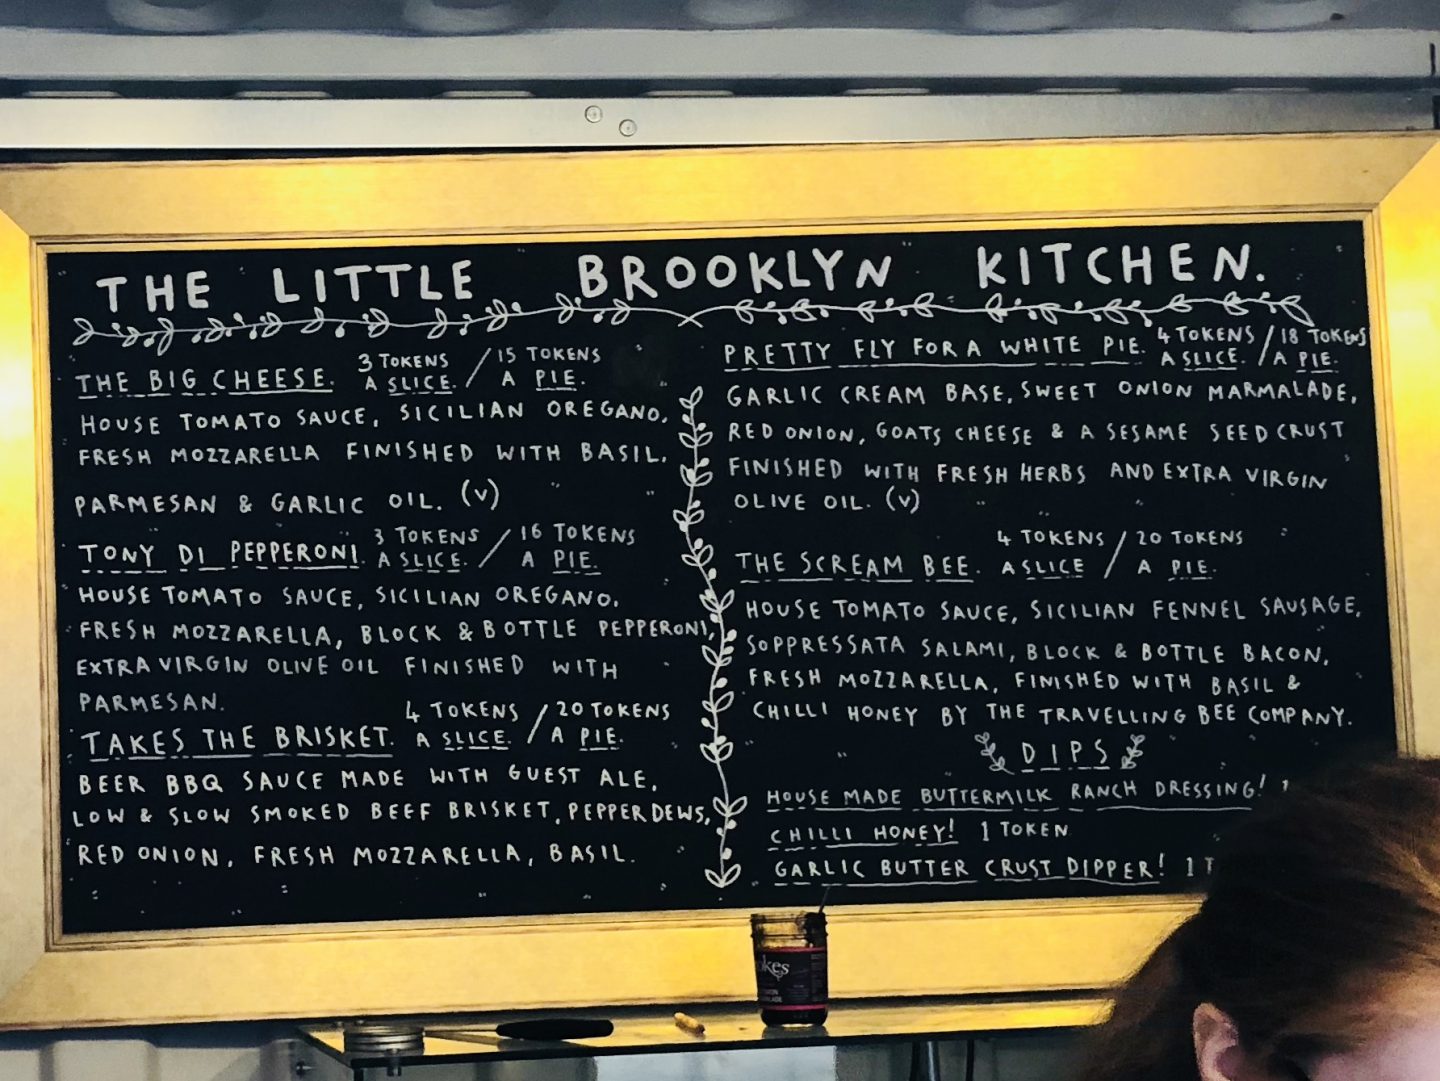 THE LITTLE BROOKLYN KITCHEN.
THE BIG CHEESE. 3 TOKENS A SLICE. / 15 TOKENS A PIE.
HOUSE TOMATO SAUCE, SICILIAN OREGANO,
FRESH MOZZARELLA FINISHED WITH BASIL,
PARMESAN & GARLIC OIL. (V)
TONY DI PEPPERONI. 3 TOKENS A SLICE. / 16 TOKENS A PIE.
HOUSE TOMATO SAUCE, SICILIAN OREGANO,
FRESH MOZZARELLA, BLOCK & BOTTLE PEPPERONI,
EXTRA VIRGIN OLIVE OIL FINISHED WITH
PARMESAN.
TAKES THE BRISKET. 4 TOKENS A SLICE. / 20 TOKENS A PIE.
BEER BBQ SAUCE MADE WITH GUEST ALE,
LOW & SLOW SMOKED BEEF BRISKET, PEPPERDEWS,
RED ONION, FRESH MOZZARELLA, BASIL.
PRETTY FLY FOR A WHITE PIE. 4 TOKENS A SLICE. / 18 TOKENS A PIE.
GARLIC CREAM BASE, SWEET ONION MARMALADE,
RED ONION, GOATS CHEESE & A SESAME SEED CRUST
FINISHED WITH FRESH HERBS AND EXTRA VIRGIN
OLIVE OIL. (V)
THE SCREAM BEE. 4 TOKENS A SLICE / 20 TOKENS A PIE.
HOUSE TOMATO SAUCE, SICILIAN FENNEL SAUSAGE,
SOPPRESSATA SALAMI, BLOCK & BOTTLE BACON,
FRESH MOZZARELLA, FINISHED WITH BASIL &
CHILLI HONEY BY THE TRAVELLING BEE COMPANY.
DIPS
HOUSE MADE BUTTERMILK RANCH DRESSING! 1
CHILLI HONEY! 1 TOKEN
GARLIC BUTTER CRUST DIPPER! 1 T
okes